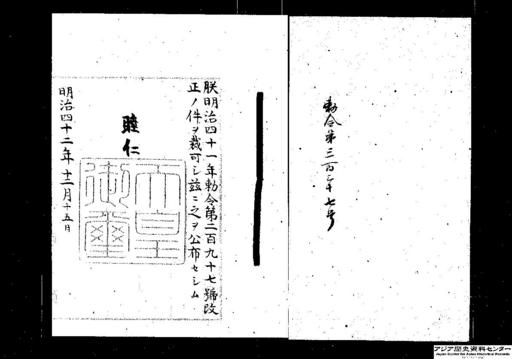 勅令第三百三十七号
朕明治四十一年勅令第二百九十七號改
正ノ件ヲ裁可シ茲ニ之ヲ公布セシム
睦仁
天皇
御璽
明治四十二年十二月十五日
アジア歴史資料センター
Japan Center for Asian Historical Records